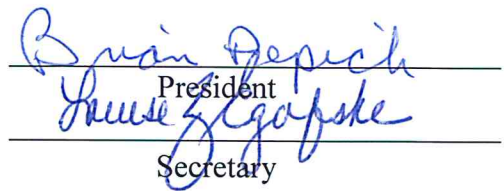 Brian Depich
President
Louise
Secretary